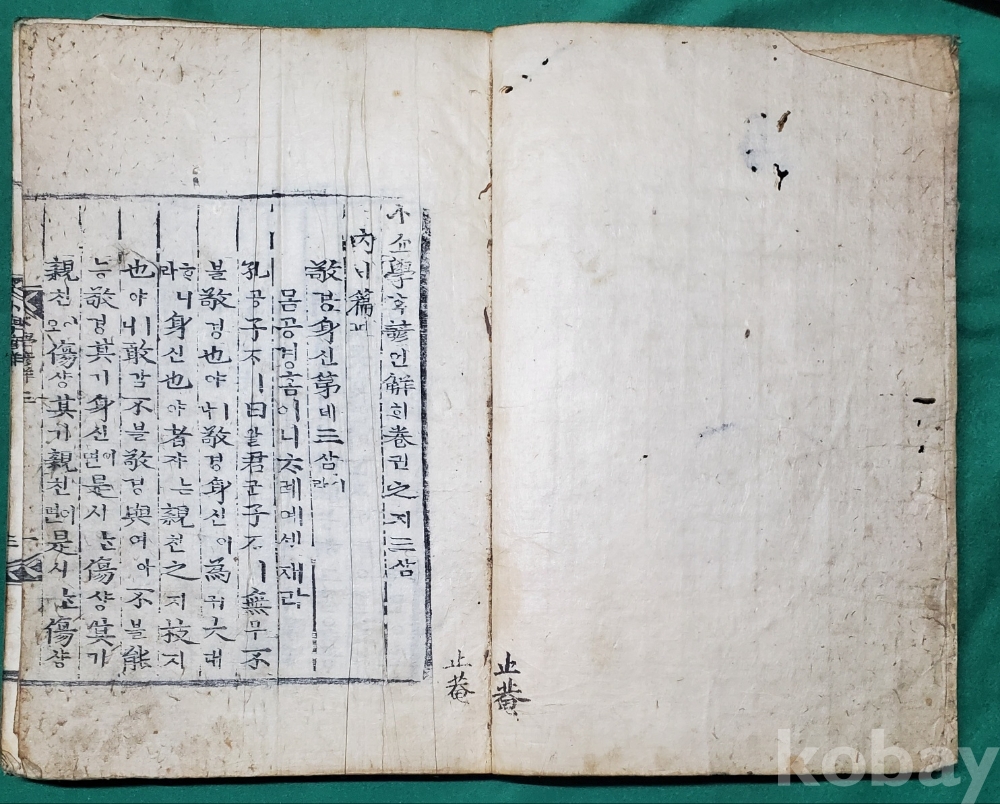 止菴
止菴
小쇼學ᄒᆞᆨ諺언解ᄒᆡ卷권之지三삼
內ᄂᆡ篇편
敬경身신第뎨三삼이라
몸공경홈이니ᄎᆞ례예세재라
孔공子ᄌᆞㅣ曰왈君군子ᄌᆞㅣ無무不
블敬경也야ㅣ나敬경身신이為위大대
ᄒᆞ니라身신也야者쟈ᄂᆞᆫ親친之지枝지
也야ㅣ니敢감不블敬경與여아不블能
능敬경其기身신이면是시ᄂᆞᆫ傷샹其기
親친이오傷샹其기親친이면是시ᄂᆞᆫ傷샹
kobay